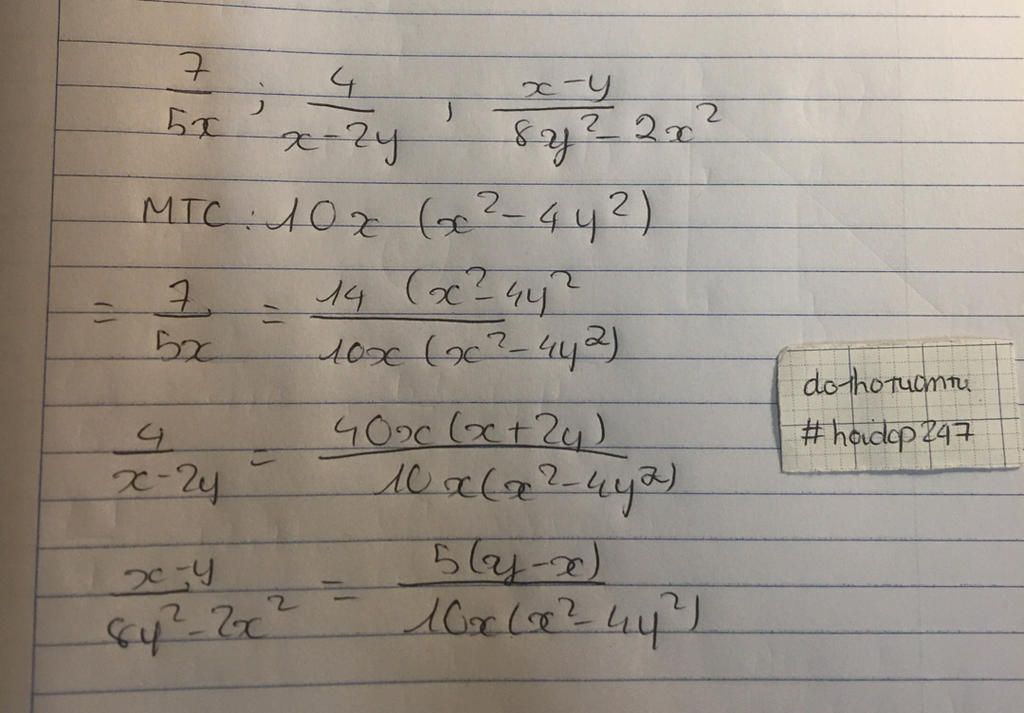 7/5x ; 4/(x-2y) , (x-y)/(8y²-2x²)
MTC: 10x (x²-4y²)
= 7/5x = 14 (x²-4y² / 10x (x²-4y²)
4/(x-2y) = 40x(x+2y) / 10x(x²-4y²)
(x-y)/(8y²-2x²) = 5(y-x) / 10x(x²-4y²)
#hoidap247